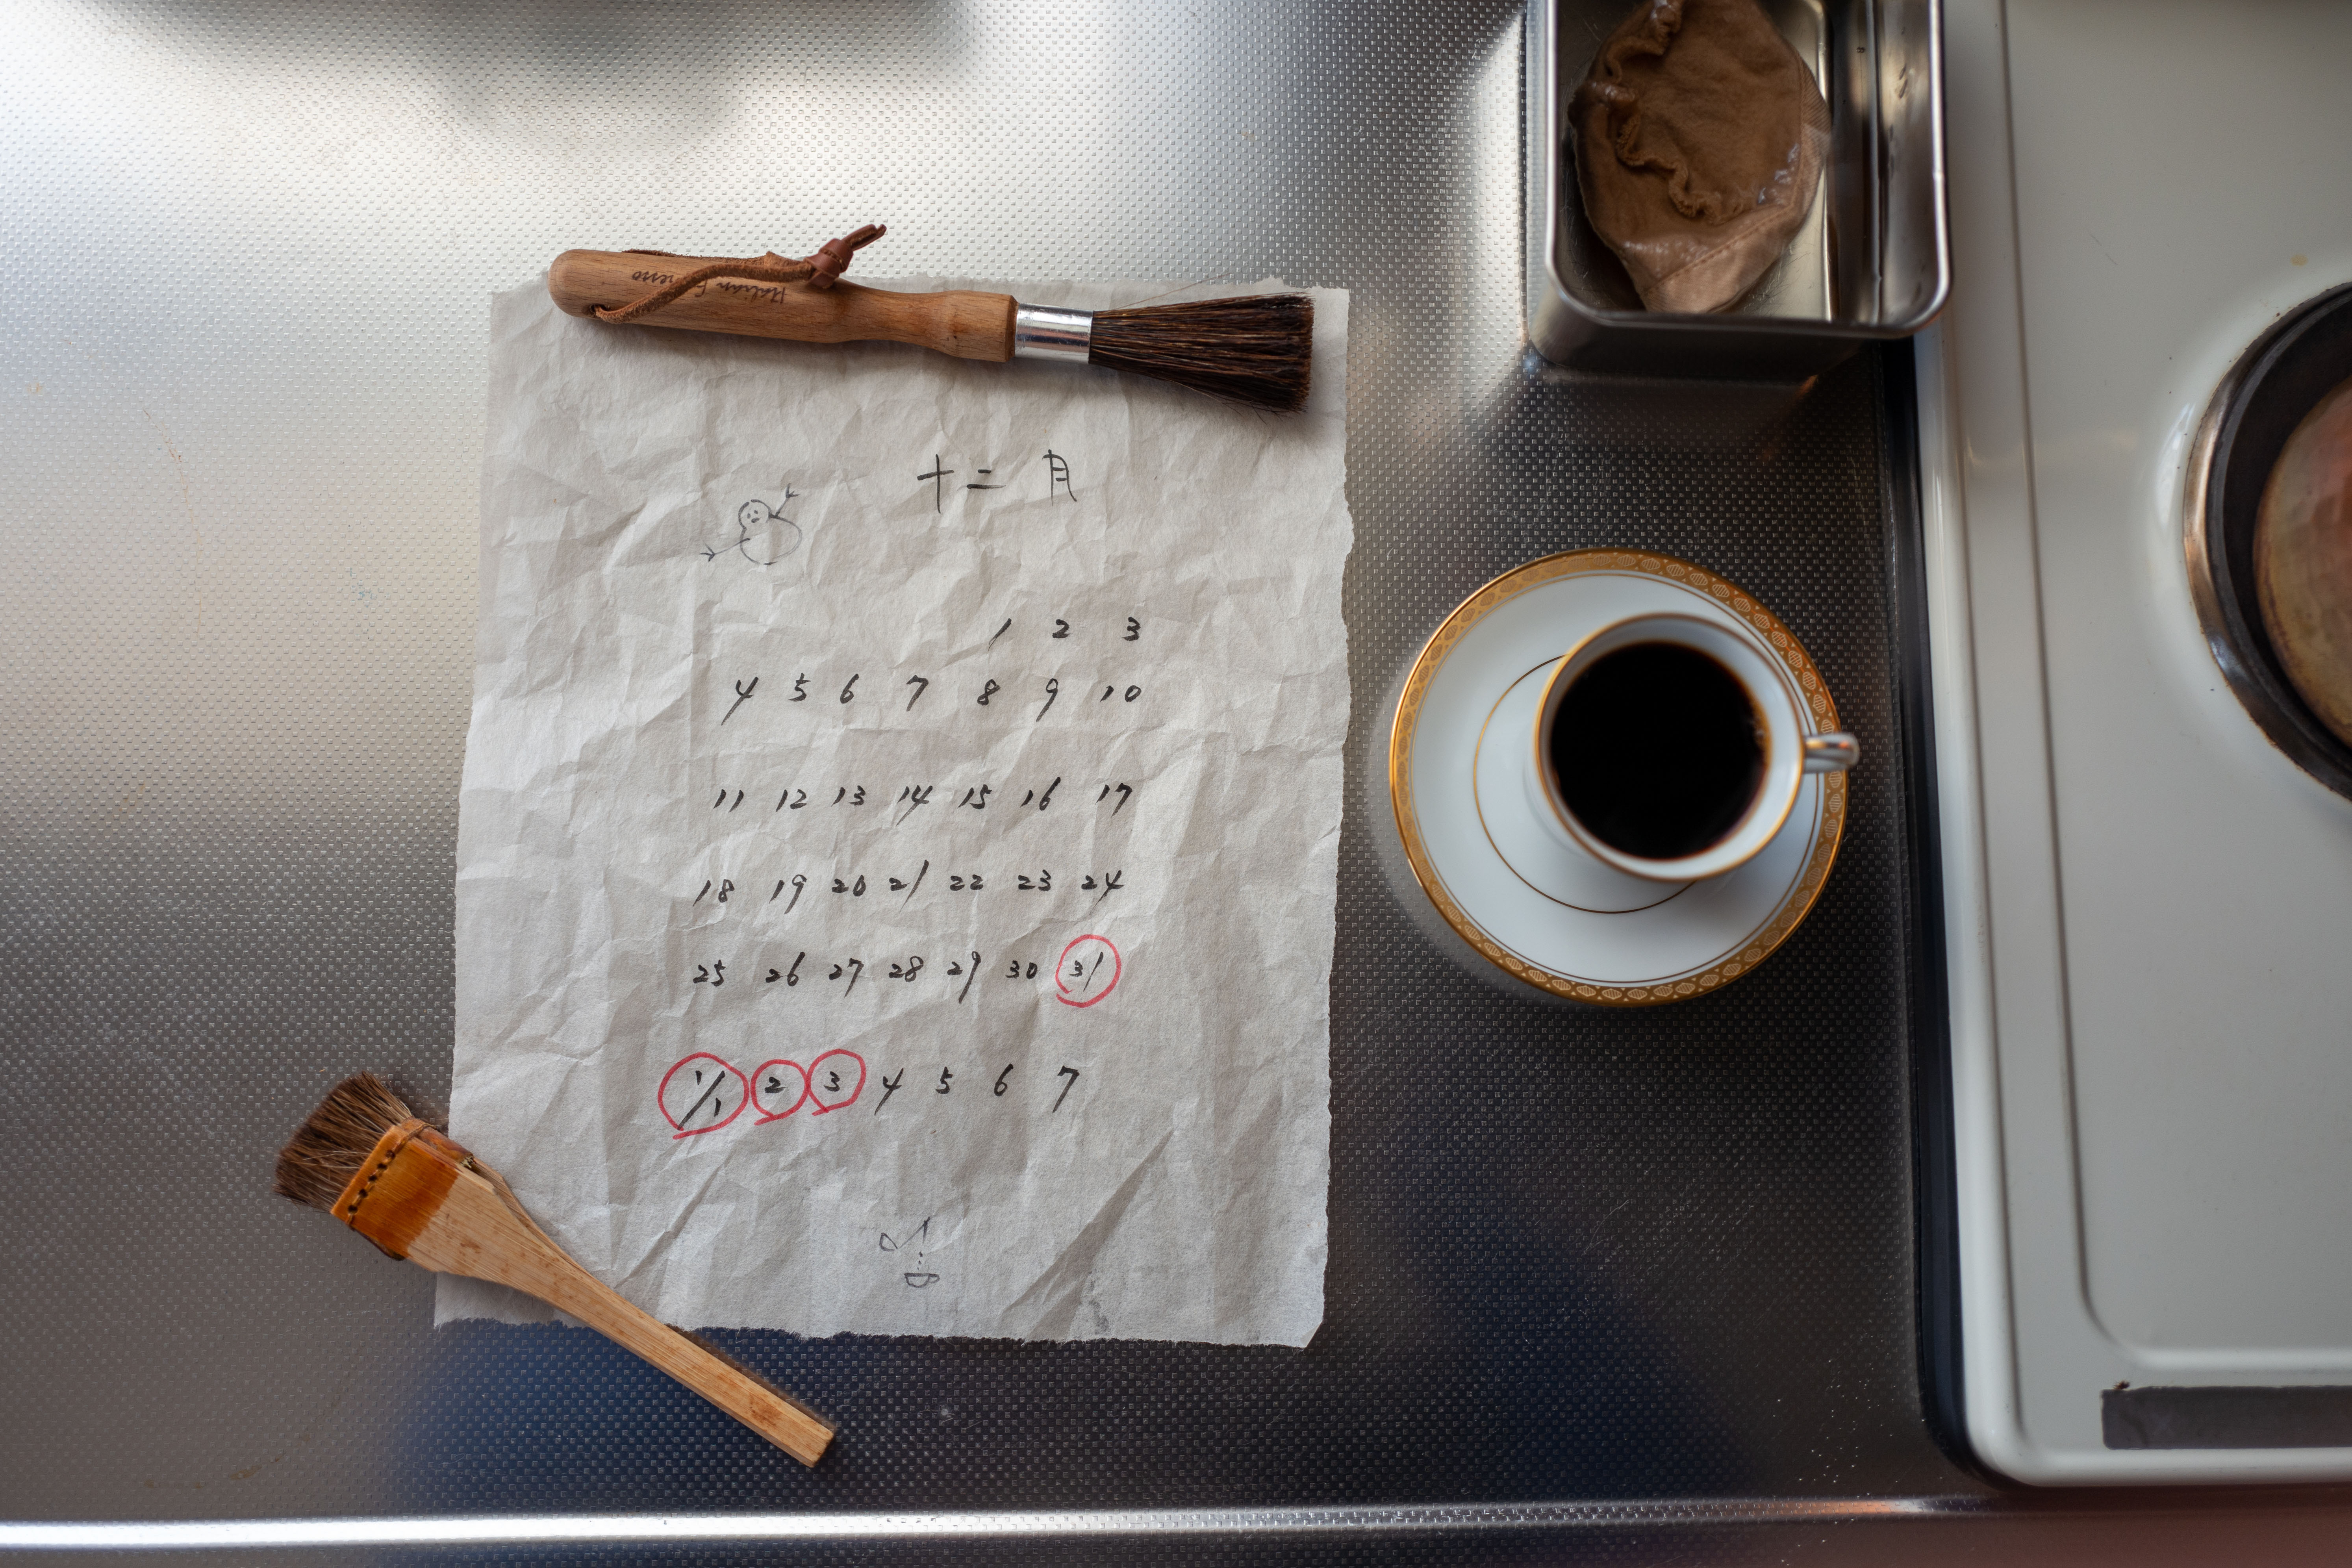 十二月
1 2 3
4 5 6 7 8 9 10
11 12 13 14 15 16 17
18 19 20 21 22 23 24
25 26 27 28 29 30 31
1/1 2 3 4 5 6 7